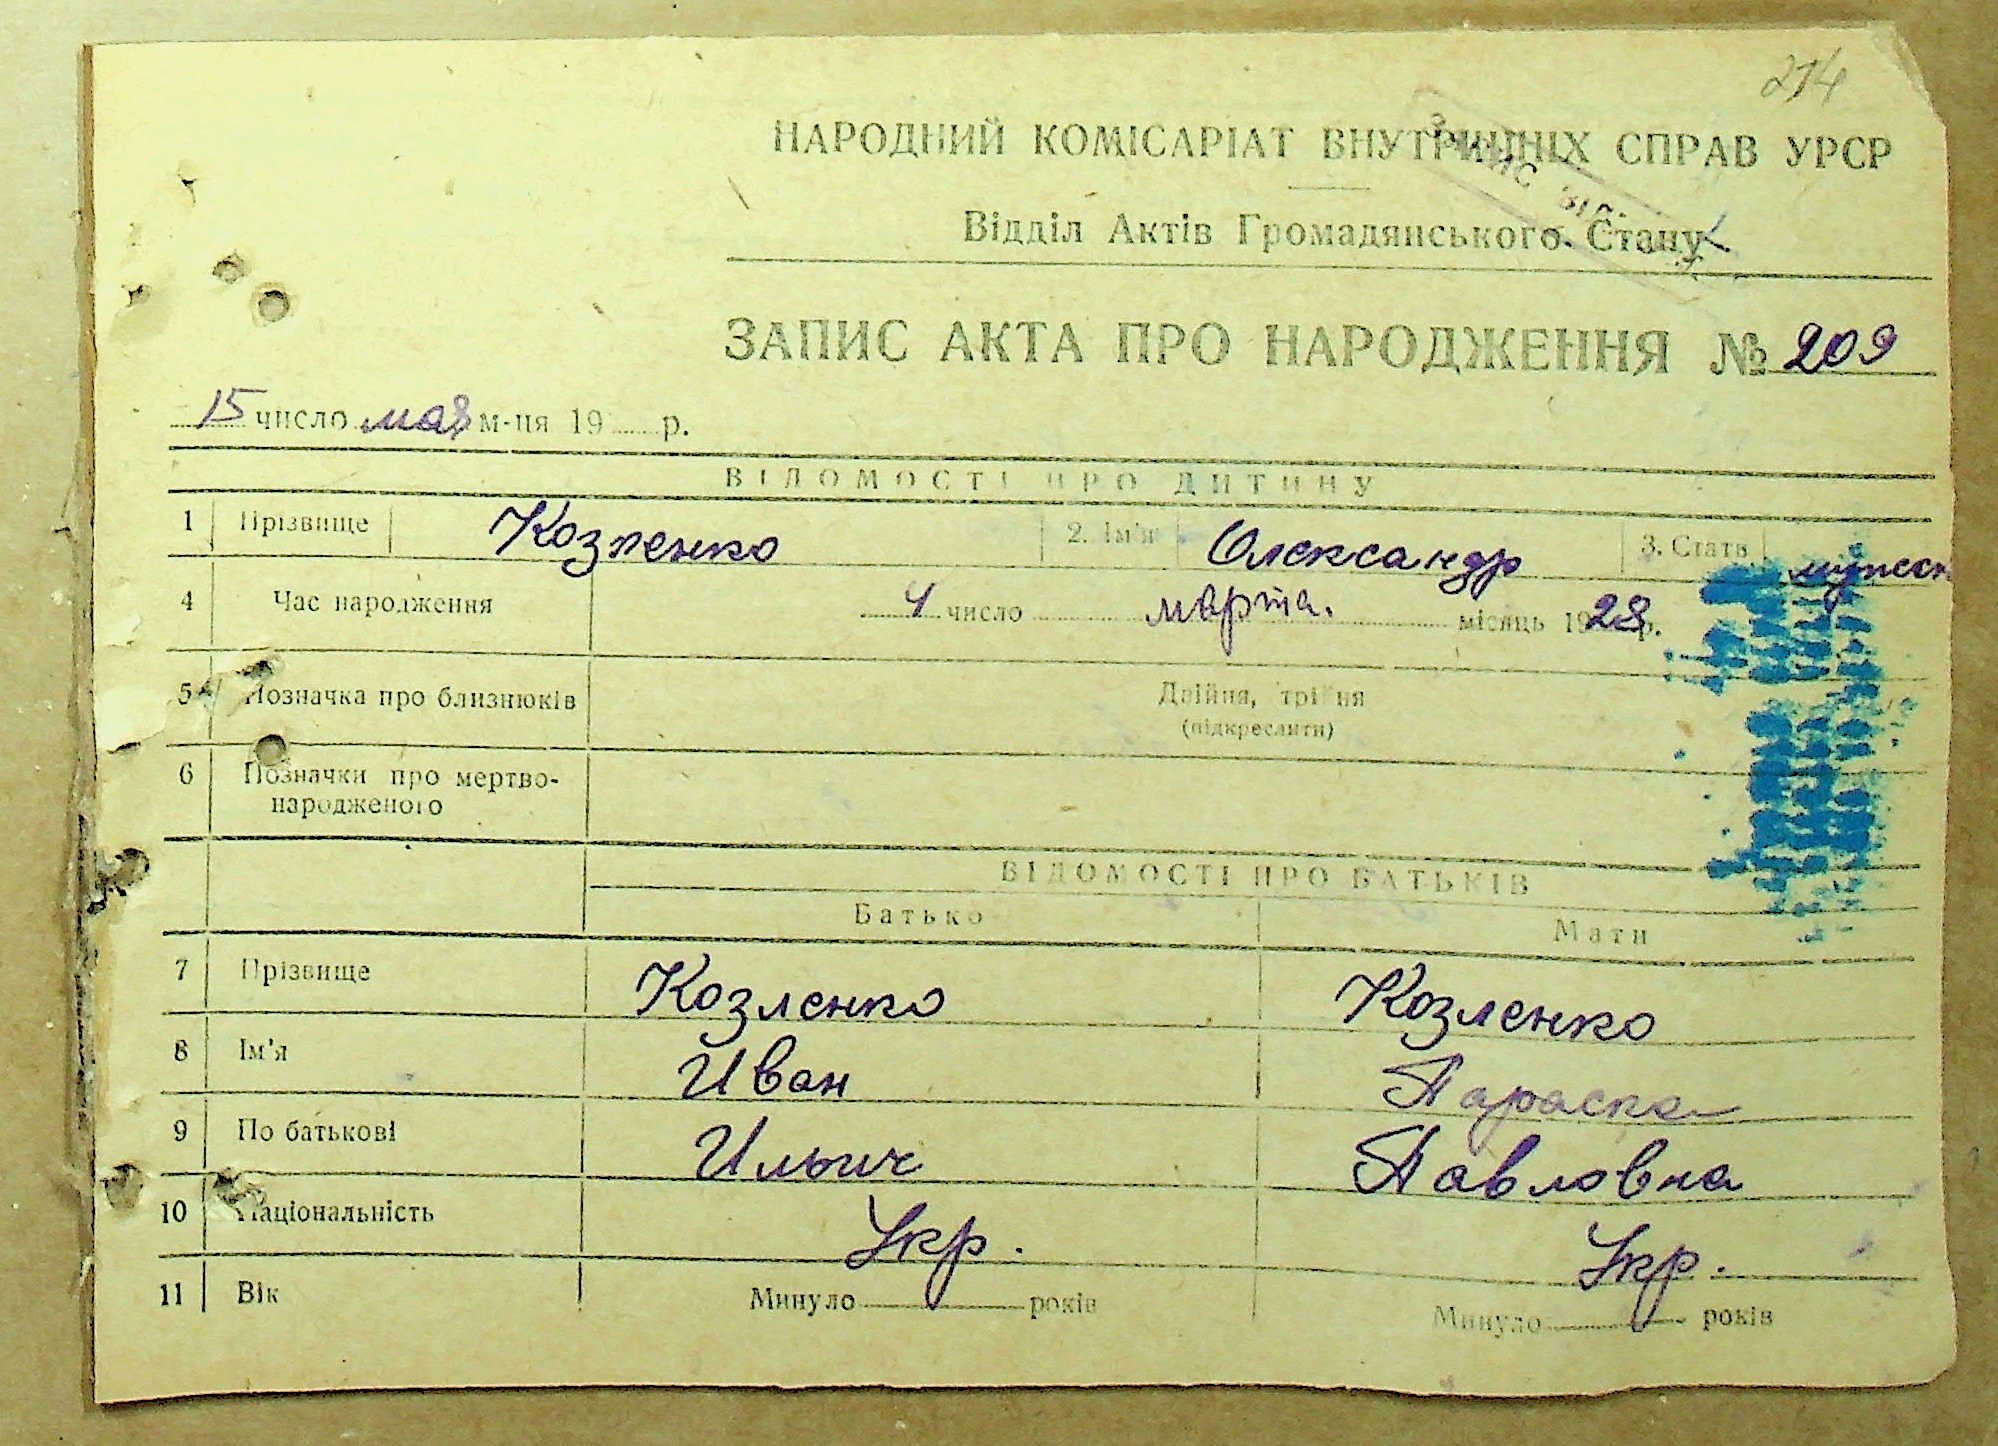 214
НАРОДНИЙ КОМІСАРІАТ ВНУТРІШНІХ СПРАВ УРСР
Відділ Актів Громадянського Стану
ЗАПИС АКТА ПРО НАРОДЖЕННЯ № 209
15 число мая м-ця 19 р.
ВІДОМОСТІ ПРО ДИТИНУ
1 Прізвище Козленко 2. Ім'я Олександр 3. Стать
4 Час народження 4 число марта. місяць 1928 р.
5 Позначка про близнюків Двійня, трійня
(підкреслити)
6 Позначки про мертво-
народженого
ВІДОМОСТІ ПРО БАТЬКІВ
Батько Мати
7 Прізвище Козленко Козленко
8 Ім'я Иван Параска
9 По батькові Ильич Павловна
10 Національність Укр. Укр.
11 Вік Минуло років Минуло років